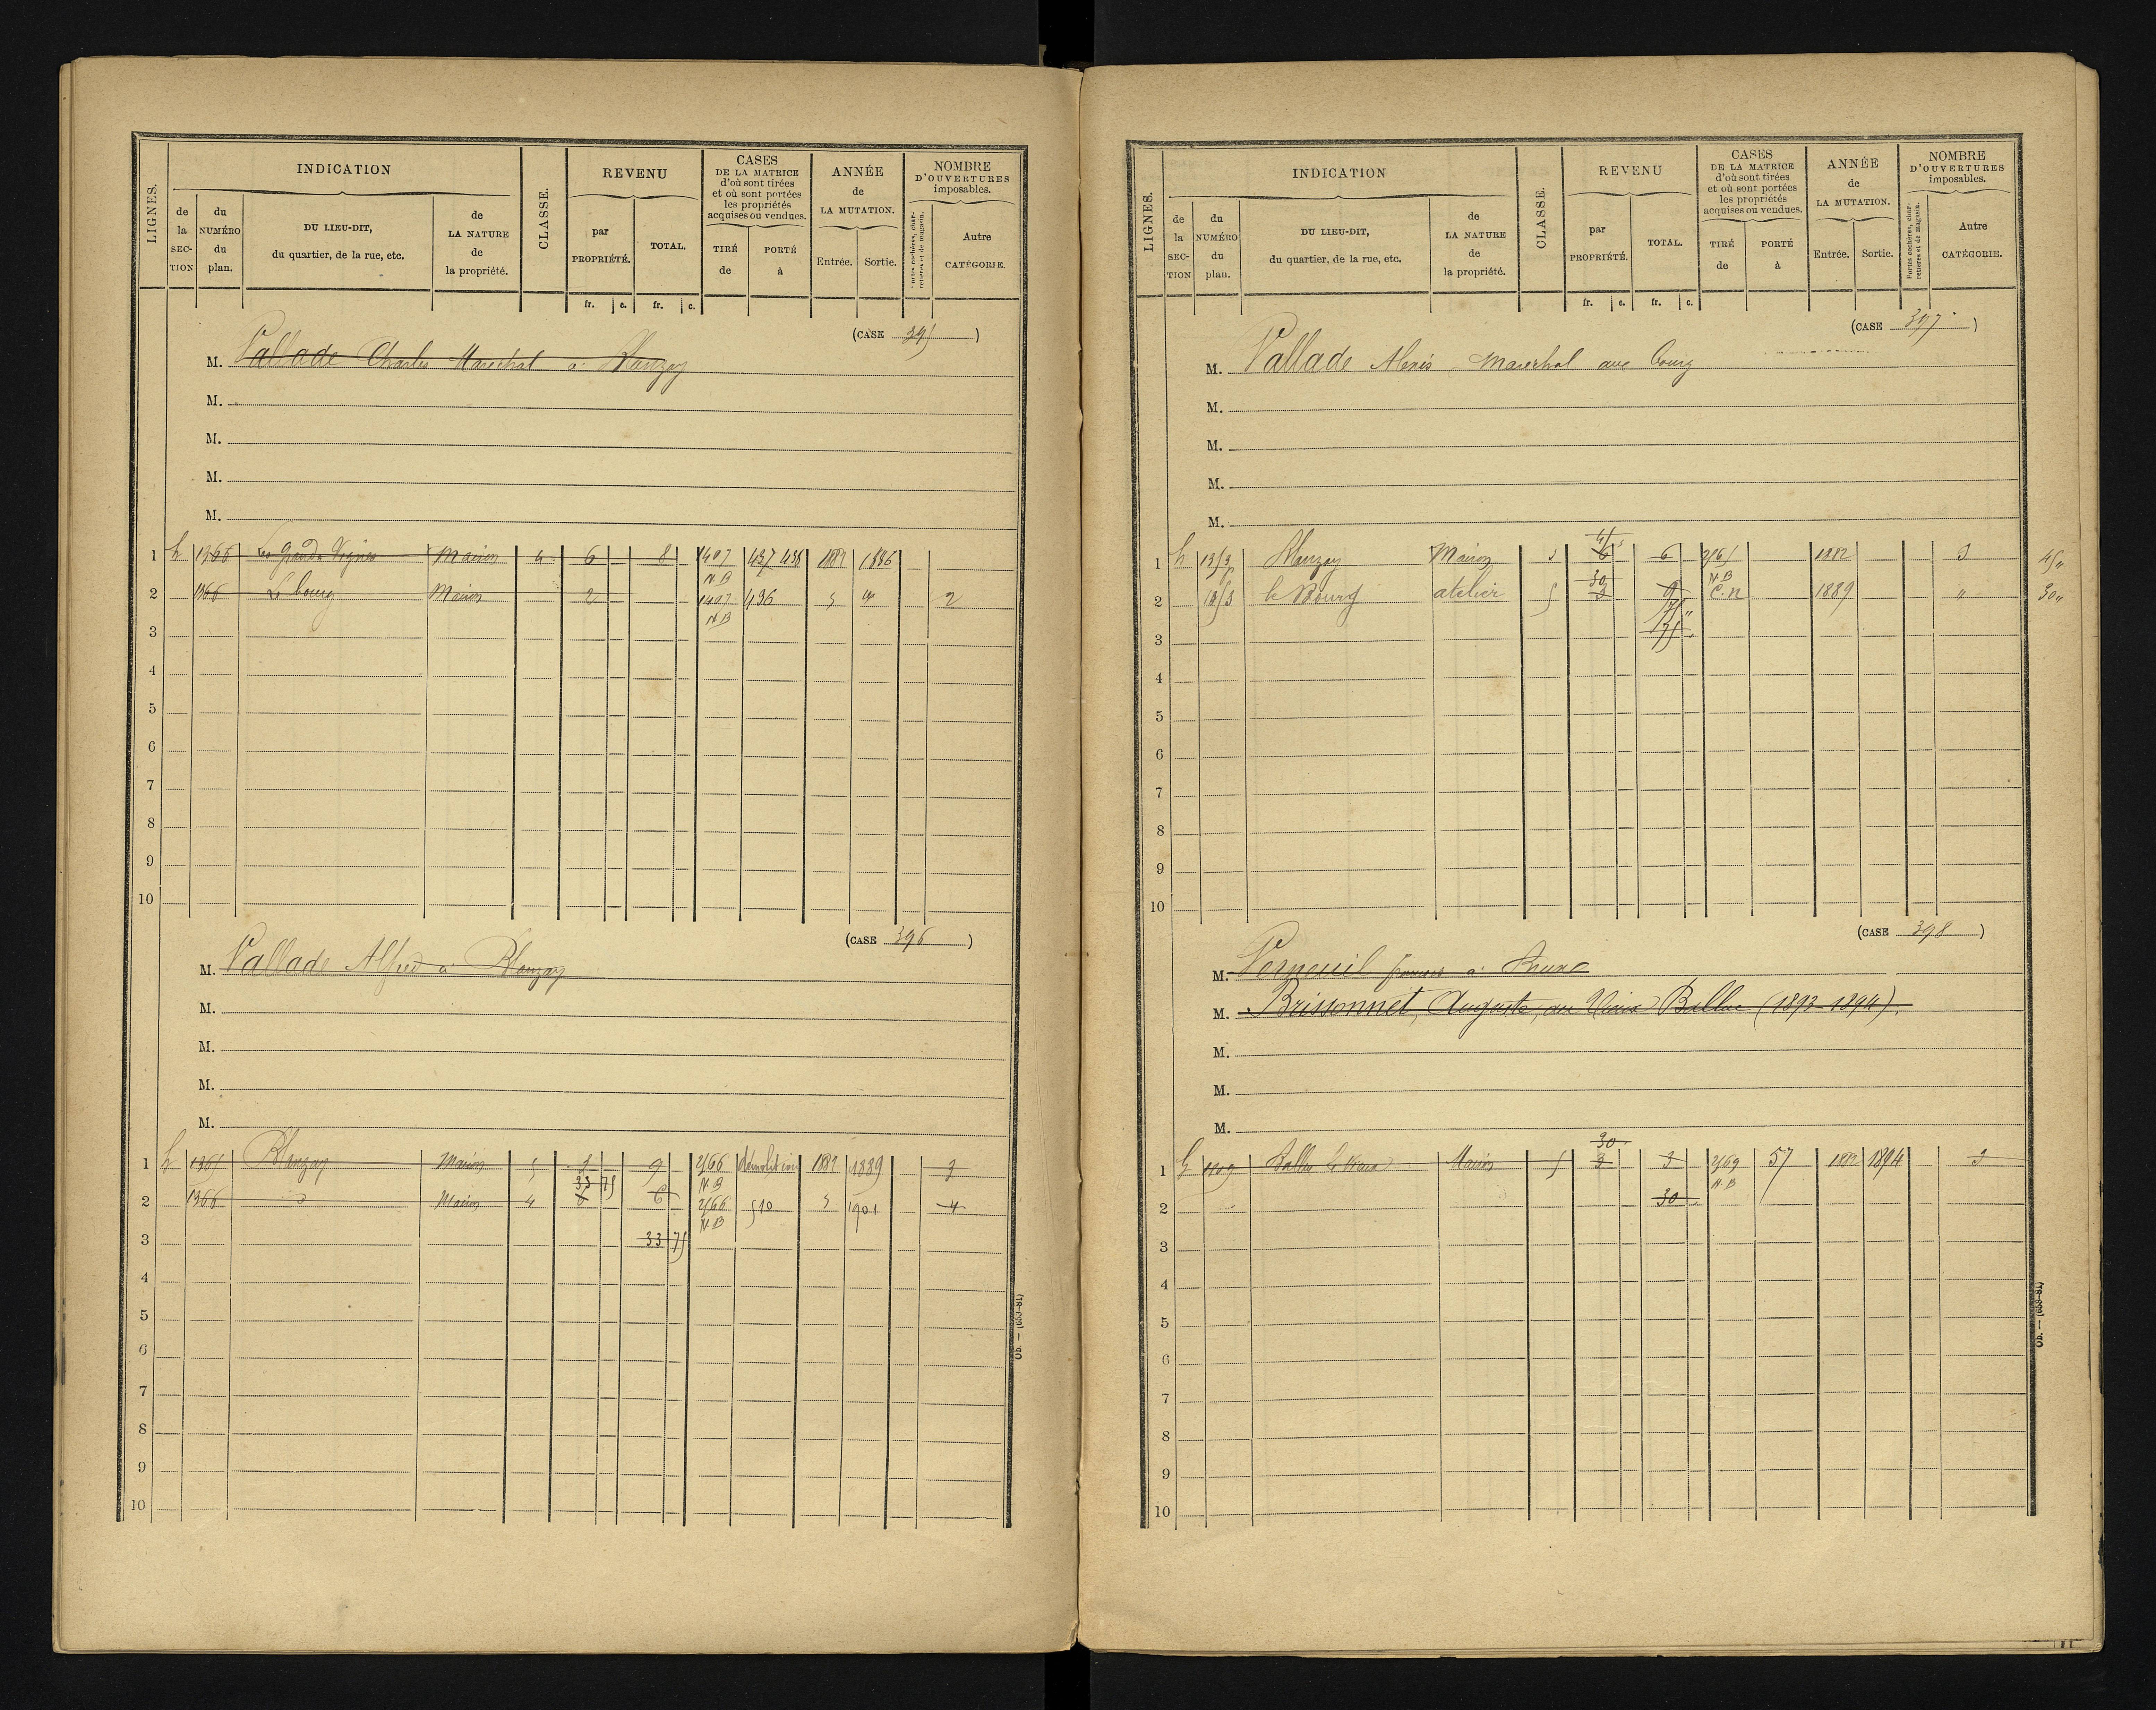 LIGNES.
INDICATION
de la SEC-TION
du NUMÉRO du plan.
DU LIEU-DIT, du quartier, de la rue, etc.
de LA NATURE de la propriété.
CLASSE.
REVENU
par PROPRIÉTÉ.
TOTAL.
fr. c. fr. c.
CASES DE LA MATRICE d'où sont tirées et où sont portées les propriétés acquises ou vendues.
TIRÉ de
PORTÉ à
ANNÉE de LA MUTATION.
Entrée. Sortie.
NOMBRE D'OUVERTURES imposables.
Portes cochères, charretières et de magasin.
Autre CATÉGORIE.
(CASE 395)
M. Vallade Charles Maréchal à Blanzay
M.
M.
M.
M.
1 h 1366 Les grandes Vignes Maison 4 6 8 437 438 1882 1886
N.B
2 1366 Le bourg Maison 2 436 2
N.B
3
4
5
6
7
8
9
10
(CASE 396)
M. Vallade Alfred à Blanzay
M.
M.
M.
M.
1 h Blanzay Maison 5 3 9 2/66 démolition 1882 1889 3
33 75 N.B
2 1366 Maison 4 6 6 2/66 510 1901 4
N.B
3 33 75
4
5
6
7
8
9
10
Ob. — (533-81)
LIGNES.
INDICATION
de la SEC-TION
du NUMÉRO du plan.
DU LIEU-DIT, du quartier, de la rue, etc.
de LA NATURE de la propriété.
CLASSE.
REVENU
par PROPRIÉTÉ.
TOTAL.
fr. c. fr. c.
CASES DE LA MATRICE d'où sont tirées et où sont portées les propriétés acquises ou vendues.
TIRÉ de
PORTÉ à
ANNÉE de LA MUTATION.
Entrée. Sortie.
NOMBRE D'OUVERTURES imposables.
Portes cochères, charretières et de magasin.
Autre CATÉGORIE.
(CASE 397)
M. Vallade Alexis Maréchal au bourg
M.
M.
M.
M.
45
1 h Blanzay Maison 6 6 1882 3 45 "
30 N.B
2 le Bourg atelier 5 3 9 C.n 1889 " 30 "
75 "
3 75
4
5
6
7
8
9
10
(CASE 398)
M. Verneuil
M. Brissonnet, Auguste, au Vieux Balluc (1893-1894).
M.
M.
M.
30
1 h Maison 5 3 3 2/69 57 1882 1894 3
N.B
2 30
3
4
5
6
7
8
9
10
Ob. — (533-81)